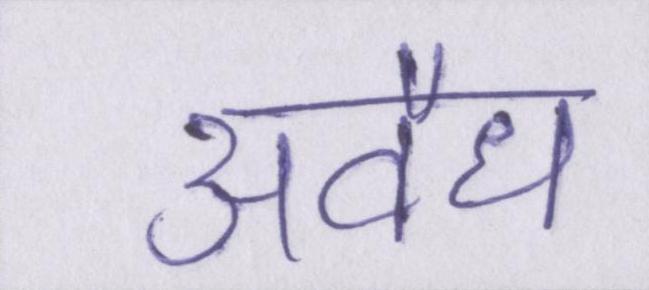 अवैध